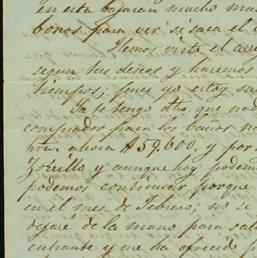 en esta bajaran mucho mas
bonos para ver si saca el
Hemos visto el arre
segun tus deseos y haremos
tiempos; pues yo estoy
Ya te tengo dho. que nad
comprador para los baños no
hoy ahora $59.600. y por
Zorrilla y aunque hoy podem
podemos continuar, porque
en el mes de Febrero; no se
dejaré de la mano para sal
entrante y me ha ofrecido